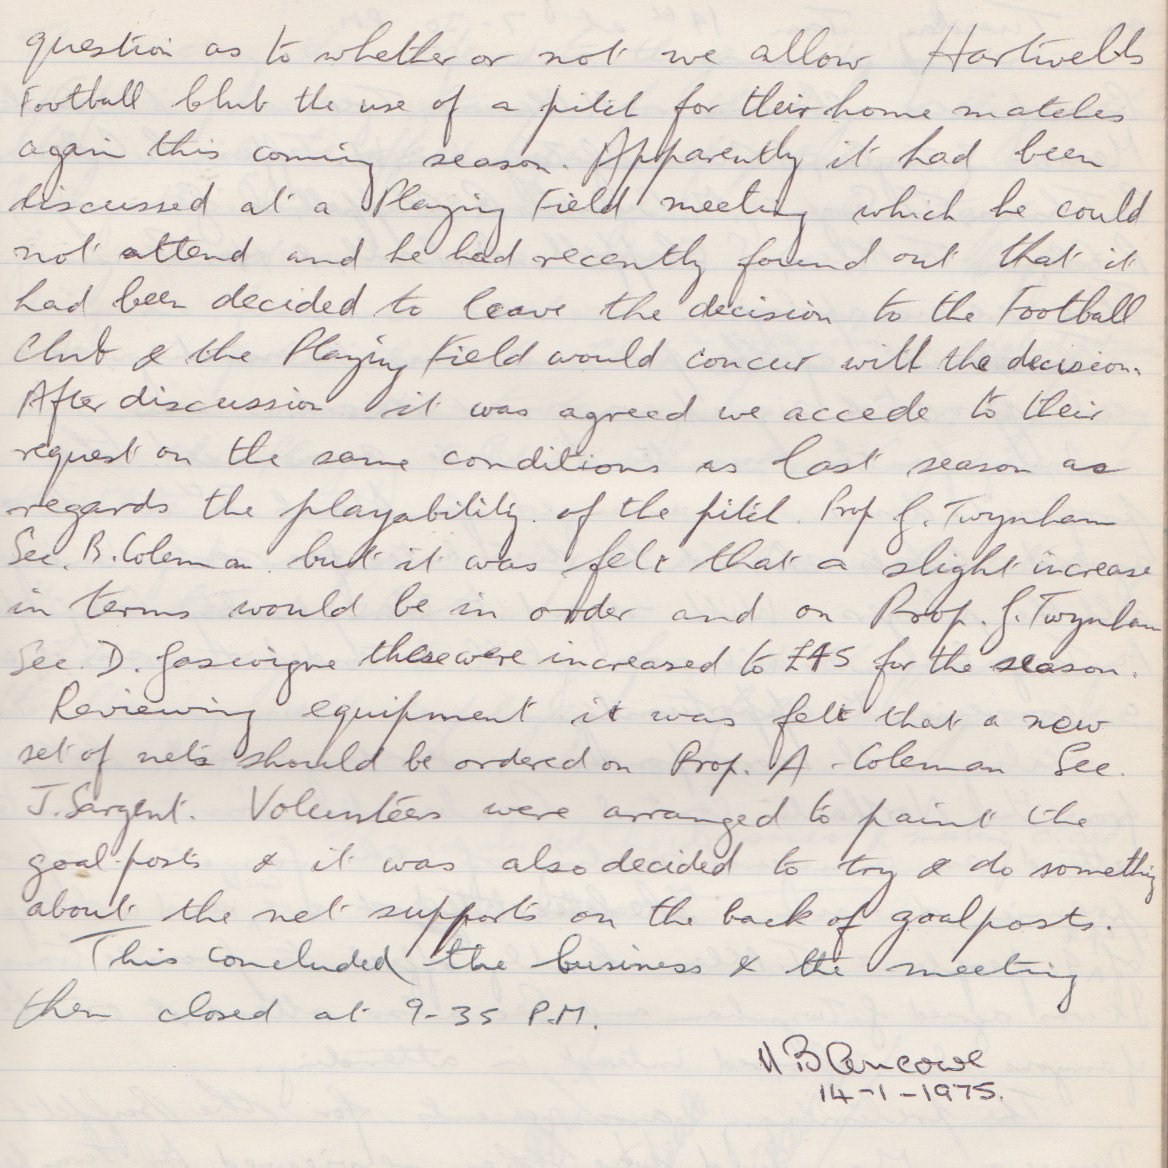 question as to whether or not we allow Hartwells
Football Club the use of a pitch for their home matches
again this coming season. Apparently it had been
discussed at a Playing Field meeting which he could
not attend and he had recently found out that it
had been decided to leave the decision to the Football
Club & the Playing Field would concur with the decision.
After discussion it was agreed we accede to their
request on the same conditions as last season as
regards the playability of the pitch. Prop G. Twynham
Sec. B. Coleman but it was felt that a slight increase
in terms would be in order and on Prop. G. Twynham
Sec. D. Gascoigne these were increased to £45 for the season.
Reviewing equipment it was felt that a new
set of nets should be ordered on Prop. A. Coleman Sec.
J. Sargent. Volunteers were arranged to paint the
goal posts & it was also decided to try & do something
about the net supports on the back of goalposts.
This concluded the business & the meeting
then closed at 9-35 P.M.
14-1-1975.